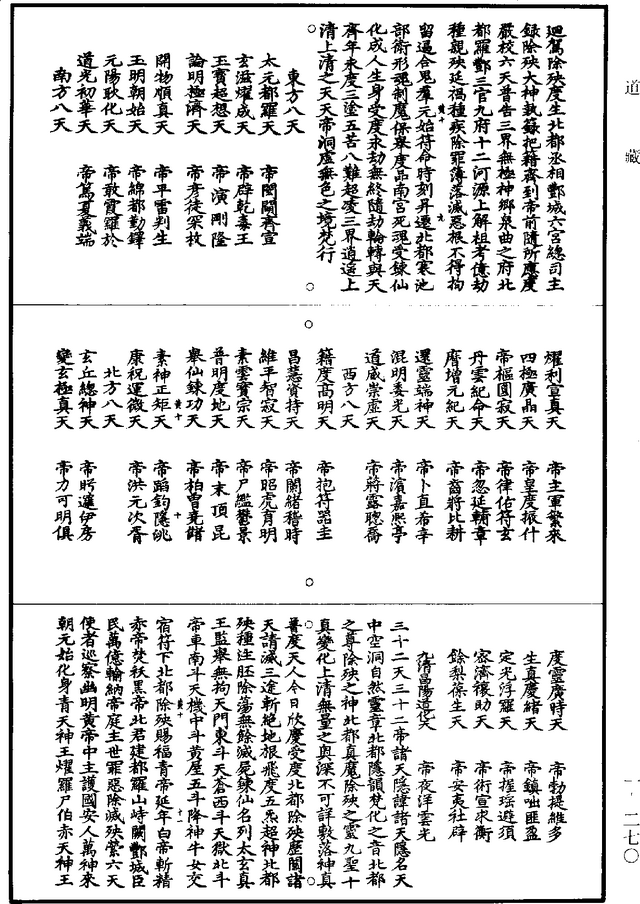 道藏
迴駕除殃度生北都丞相酆城六宮總司主
錄除殃大神執錄把籍齊到帝前隨所應度
嚴校六天普告三界無極神鄉泉曲之府北
都羅酆三官九府十二河源上解祖考億劫
種親殃延禍種疾除罪簿落滅惡根不得拘
留逼合鬼羣元始符命時刻昇遷北都寒池
部衛形魂制魔保舉度品南宮死魂受鍊仙
化成人生身受度永劫無終隨劫輪轉與天
齊年永度三塗五苦八難超凌三界逍遙上
清上清之天天帝洞虛無色之境梵行
東方八天
太元都羅天 帝閣闢齊宣
玄滋燿成天 帝辟乾毒王
玉寶超想天 帝演剛隆
論明極濟天 帝考徒罙枚
開物順真天 帝平雷判生
玉明朝始天 帝綿都勤鐸
元陽耿化天 帝敢霞羅於
道光初華天 帝篤夏義端
南方八天
燿利宣真天 帝主軍繁來
四極廣晶天 帝皇度振什
帝樞圓寂天 帝律佑符玄
丹雲紀命天 帝忽延朝章
膺增元紀天 帝齎將比耕
還靈端神天 帝卜直希辛
混明委光天 帝濱嘉熙亭
道威崇虛天 帝將露聰喬
西方八天
籍度高明天 帝抱符器圭
昌慧資持天 帝闌緒稽時
維平智寂天 帝昭虎育明
素雲寶宗天 帝尸尷鬱景
普明度地天 帝末頂昆
舉仙鍊功天 帝柏曾堯鍇
素神正矩天 帝蹈鈞隱姚
康祝運微天 帝洪元汝胥
北方八天
玄丘總神天 帝眄邏伊房
變玄極真天 帝力可明俱
度靈廣時天 帝勃提維多
生真慶緒天 帝鎮咄匪盈
定光浮羅天 帝捏瑶遊須
密濟穰助天 帝術宣求衡
餘梨葆生天 帝安夷社辟
九清昌陽造化天 帝夜洋雲光
三十二天三十二帝諸天隱諱諸天隱名天
中空洞自然靈章北都隱韻梵化之音北都
之尊除殃之神北都真魔除殃之靈九聖十
真變化上清無量之奧深不可詳敷落神真
普度天人今日欣慶受度北都除殃歷關諸
天請滅三途斬絕地根飛度五炁超神北都
殃種注胚除蕩無餘滅尸鍊仙名列太玄真
王監舉無拘天門東斗天蒼西斗天獄北斗
帝車南斗天機中斗黃屋五斗降神牛女交
宿符下北都除殃賜福青帝延年白帝斬精
赤帝焚袄黑帝北君建都羅山峙闕酆城臣
民萬億輸納帝庭主世罪惡除滅殃縈六天
使者巡察幽明黃帝中主護國安人萬神來
朝元始化身青天神王燿羅尸伯赤天神王
一·二七〇